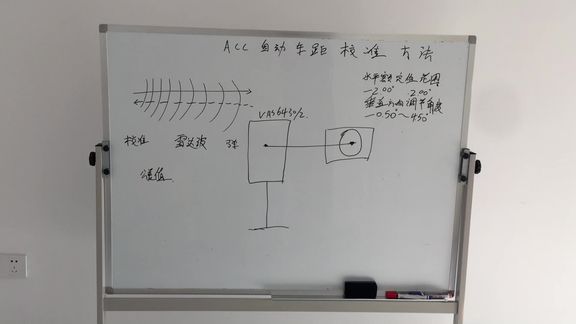 ACC 自动车距 校准 方法
水平方向定位范围
-2.00° 2.00°
垂直方向调节角度
-0.50°~4.50°
VAS6430/2.
校准 雷达波
公差值